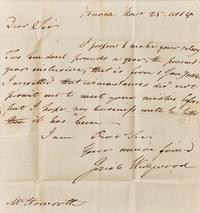 Etruria Novr 25. 1814
Dear Sir
I propose to make your salary
Two hundred pounds a year, the present
year inclusive, that is from 1 Jany
I regretted that circumstances did not
permit me to meet your wishes
but I hope my business will be better
than it has been
I am Dear Sir
Your sincere friend
Josiah Wedgwood
Mr Howorth